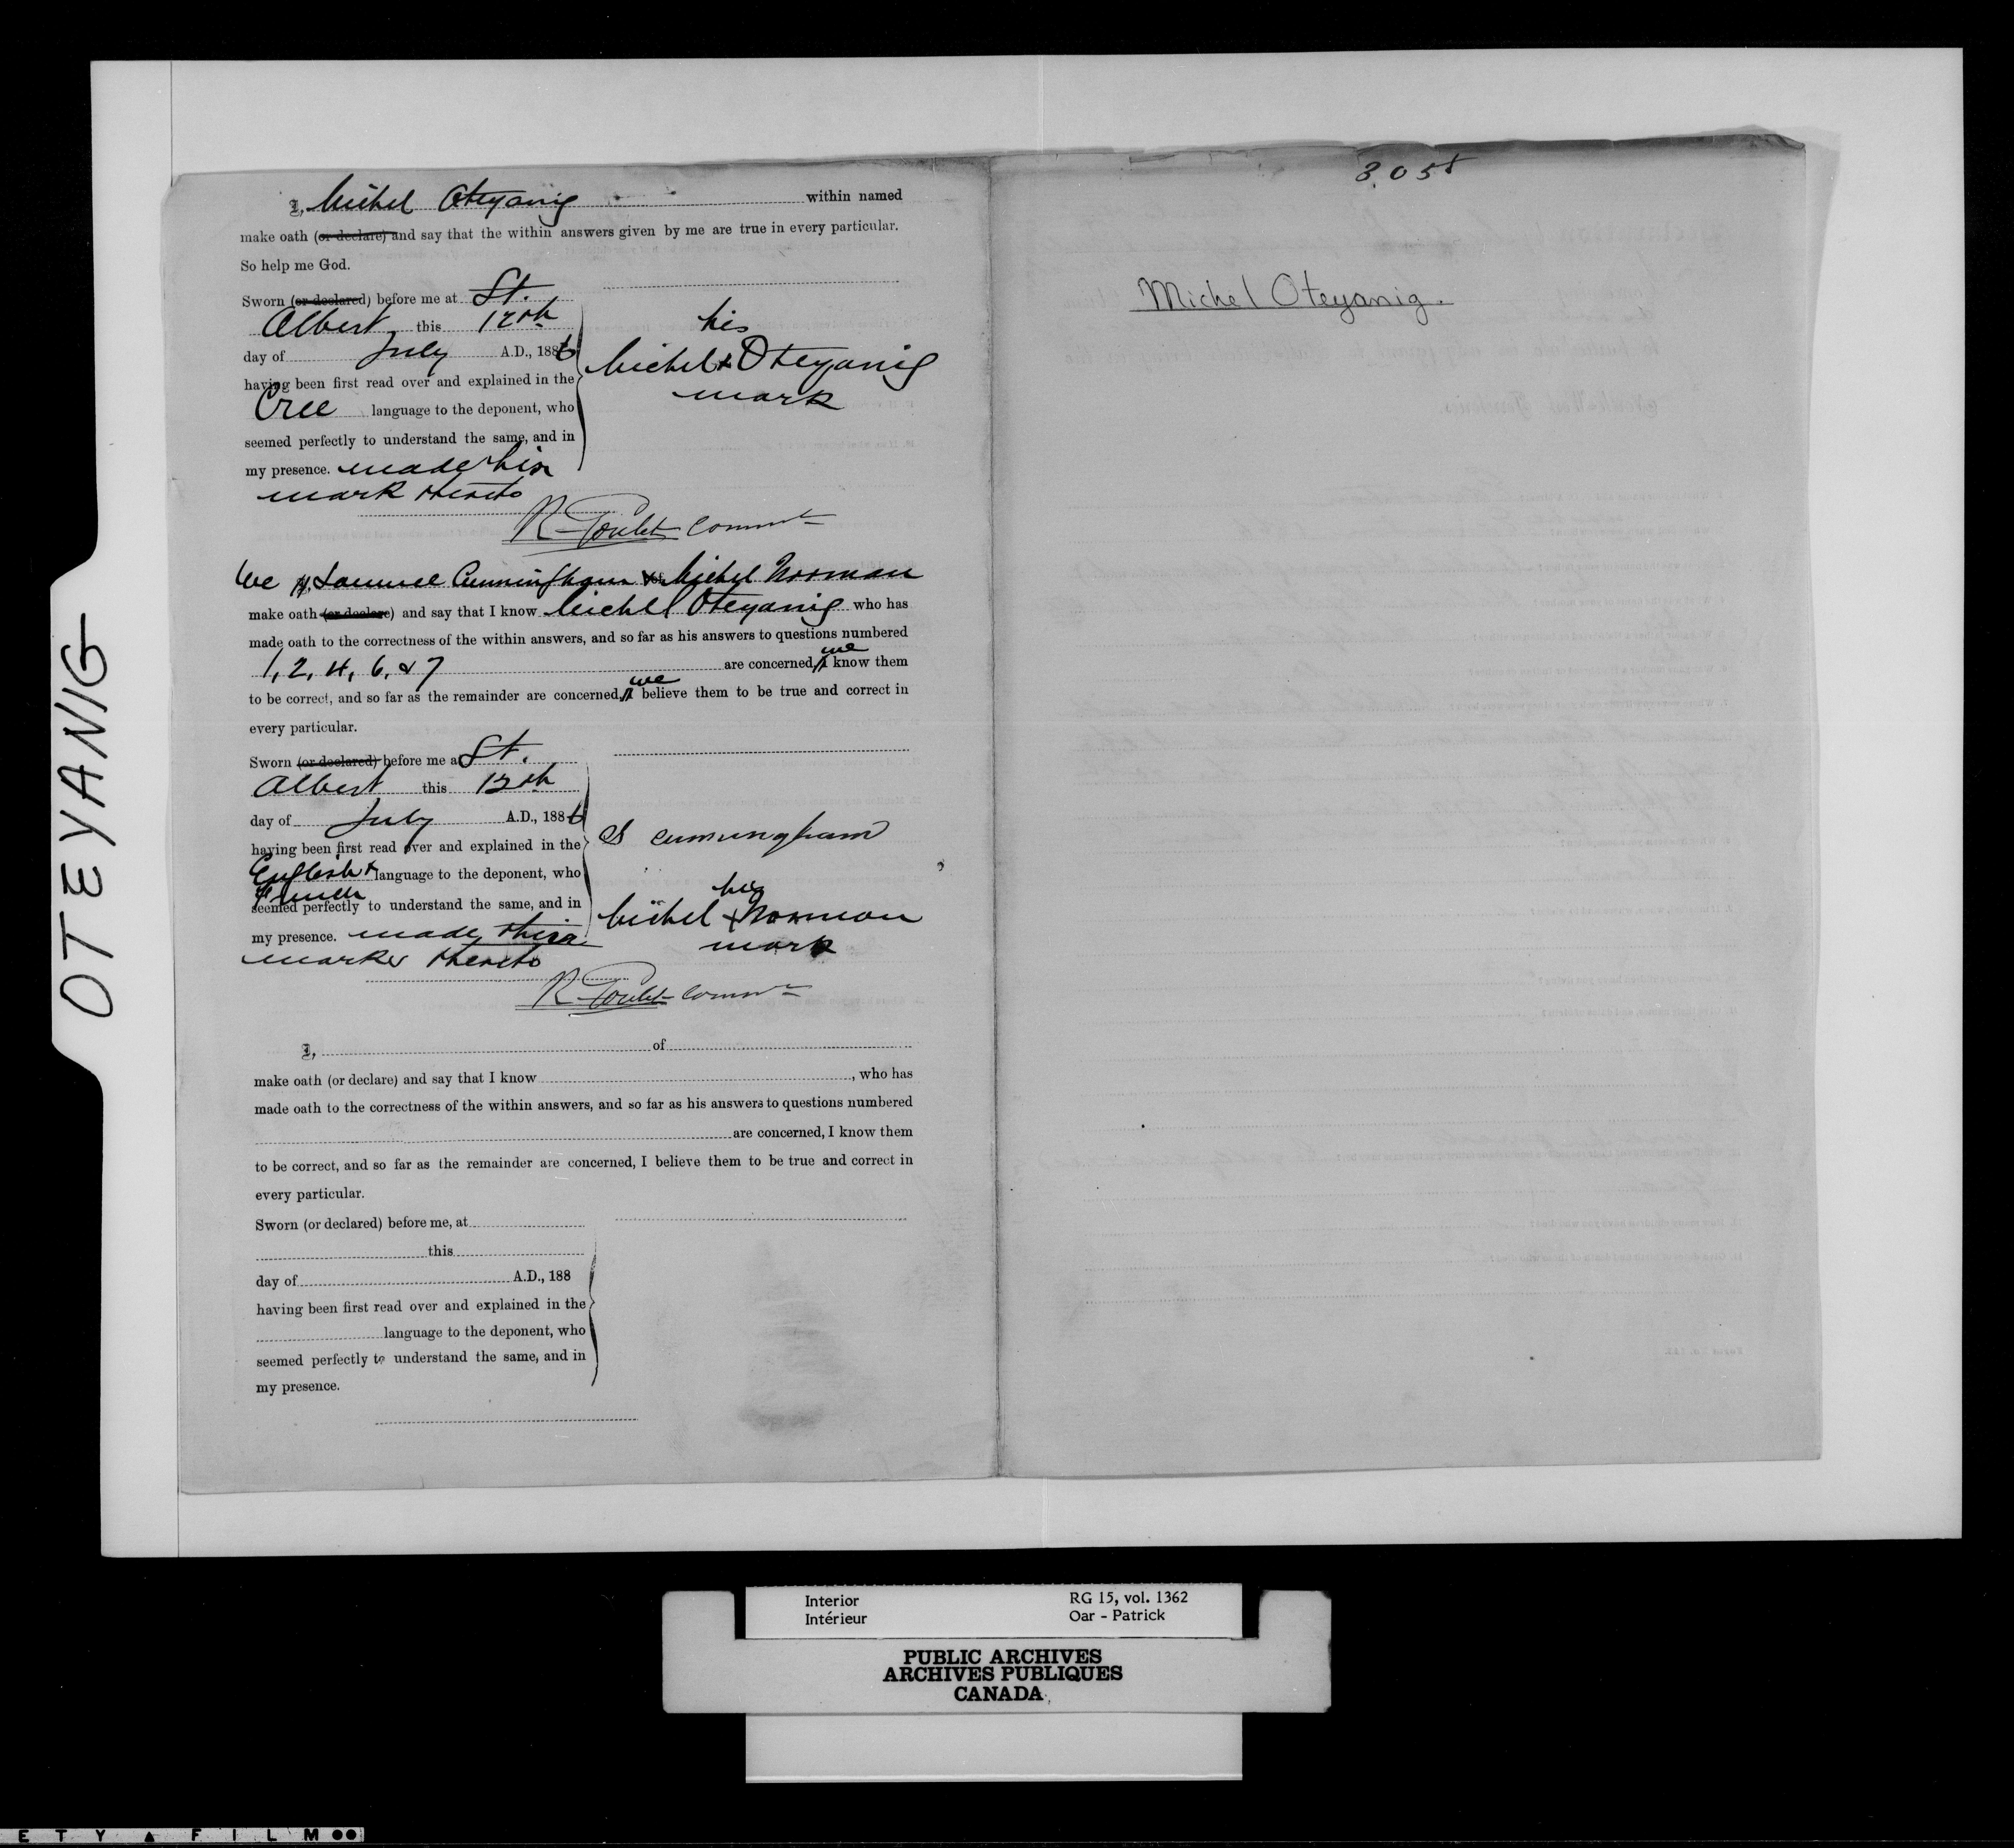 OTEYANIG
I, Michel Oteyanig within named
make oath (or declare) and say that the within answers given by me are true in every particular.
So help me God.
Sworn (or declared) before me at St.
Albert this 12th
day of July A.D., 1886
having been first read over and explained in the
Cree language to the deponent, who
seemed perfectly to understand the same, and in
my presence. made his
mark thereto
his
Michel x Oteyanig
mark
R Goulet Commr
We I, Samuel Cunningham & of Michel Norman
make oath (or declare) and say that I know Michel Oteyanig who has
made oath to the correctness of the within answers, and so far as his answers to questions numbered
1, 2, 4, 6, & 7 are concerned, I we know them
to be correct, and so far as the remainder are concerned, I we believe them to be true and correct in
every particular.
Sworn (or declared) before me at St.
Albert this 12th
day of July A.D., 1886
having been first read over and explained in the
English & French language to the deponent, who
seemed perfectly to understand the same, and in
my presence. made their
marks thereto
S Cunningham
his
Michel x Norman
mark
R Goulet Commr
I, of
make oath (or declare) and say that I know , who has
made oath to the correctness of the within answers, and so far as his answers to questions numbered
are concerned, I know them
to be correct, and so far as the remainder are concerned, I believe them to be true and correct in
every particular.
Sworn (or declared) before me, at
this
day of A.D., 188
having been first read over and explained in the
language to the deponent, who
seemed perfectly to understand the same, and in
my presence.
Michel Oteyanig.
Interior
Intérieur
RG 15, vol. 1362
Oar - Patrick
PUBLIC ARCHIVES
ARCHIVES PUBLIQUES
CANADA
E T Y ▲ F I L M ●●